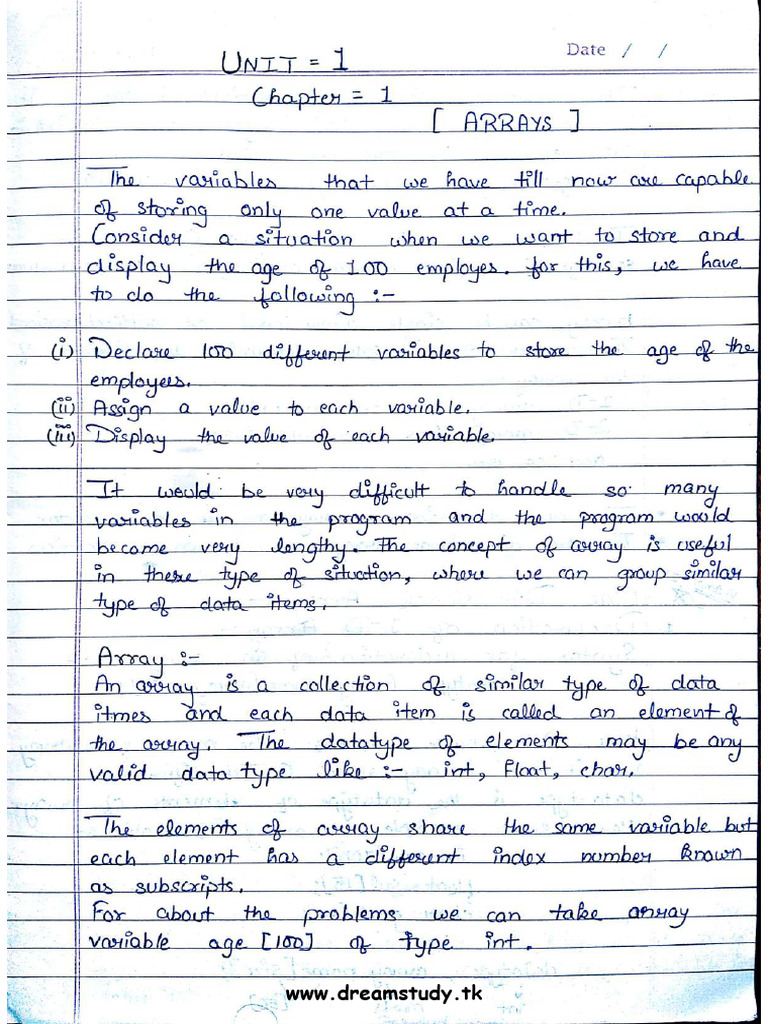 Date / /
UNIT = 1
Chapter = 1
[ ARRAYS ]
The variables that we have till now are capable
of storing only one value at a time.
Consider a situation when we want to store and
display the age of 100 employes. for this, we have
to do the following :-
(i) Declare 100 different variables to store the age of the
employees.
(ii) Assign a value to each variable.
(iii) Display the value of each variable.
It would be very difficult to handle so many
variables in the program and the program would
become very lengthy. The concept of array is useful
in these type of situction, where we can group similar
type of data items.
Array :-
An array is a collection of similar type of data
itmes and each data item is called an element of
the array. The datatype of elements may be any
valid data type like :- int, float, char.
The elements of array share the same variable but
each element has a different index number known
as subscripts.
For about the problems we can take array
variable age [100] of type int.
www.dreamstudy.tk